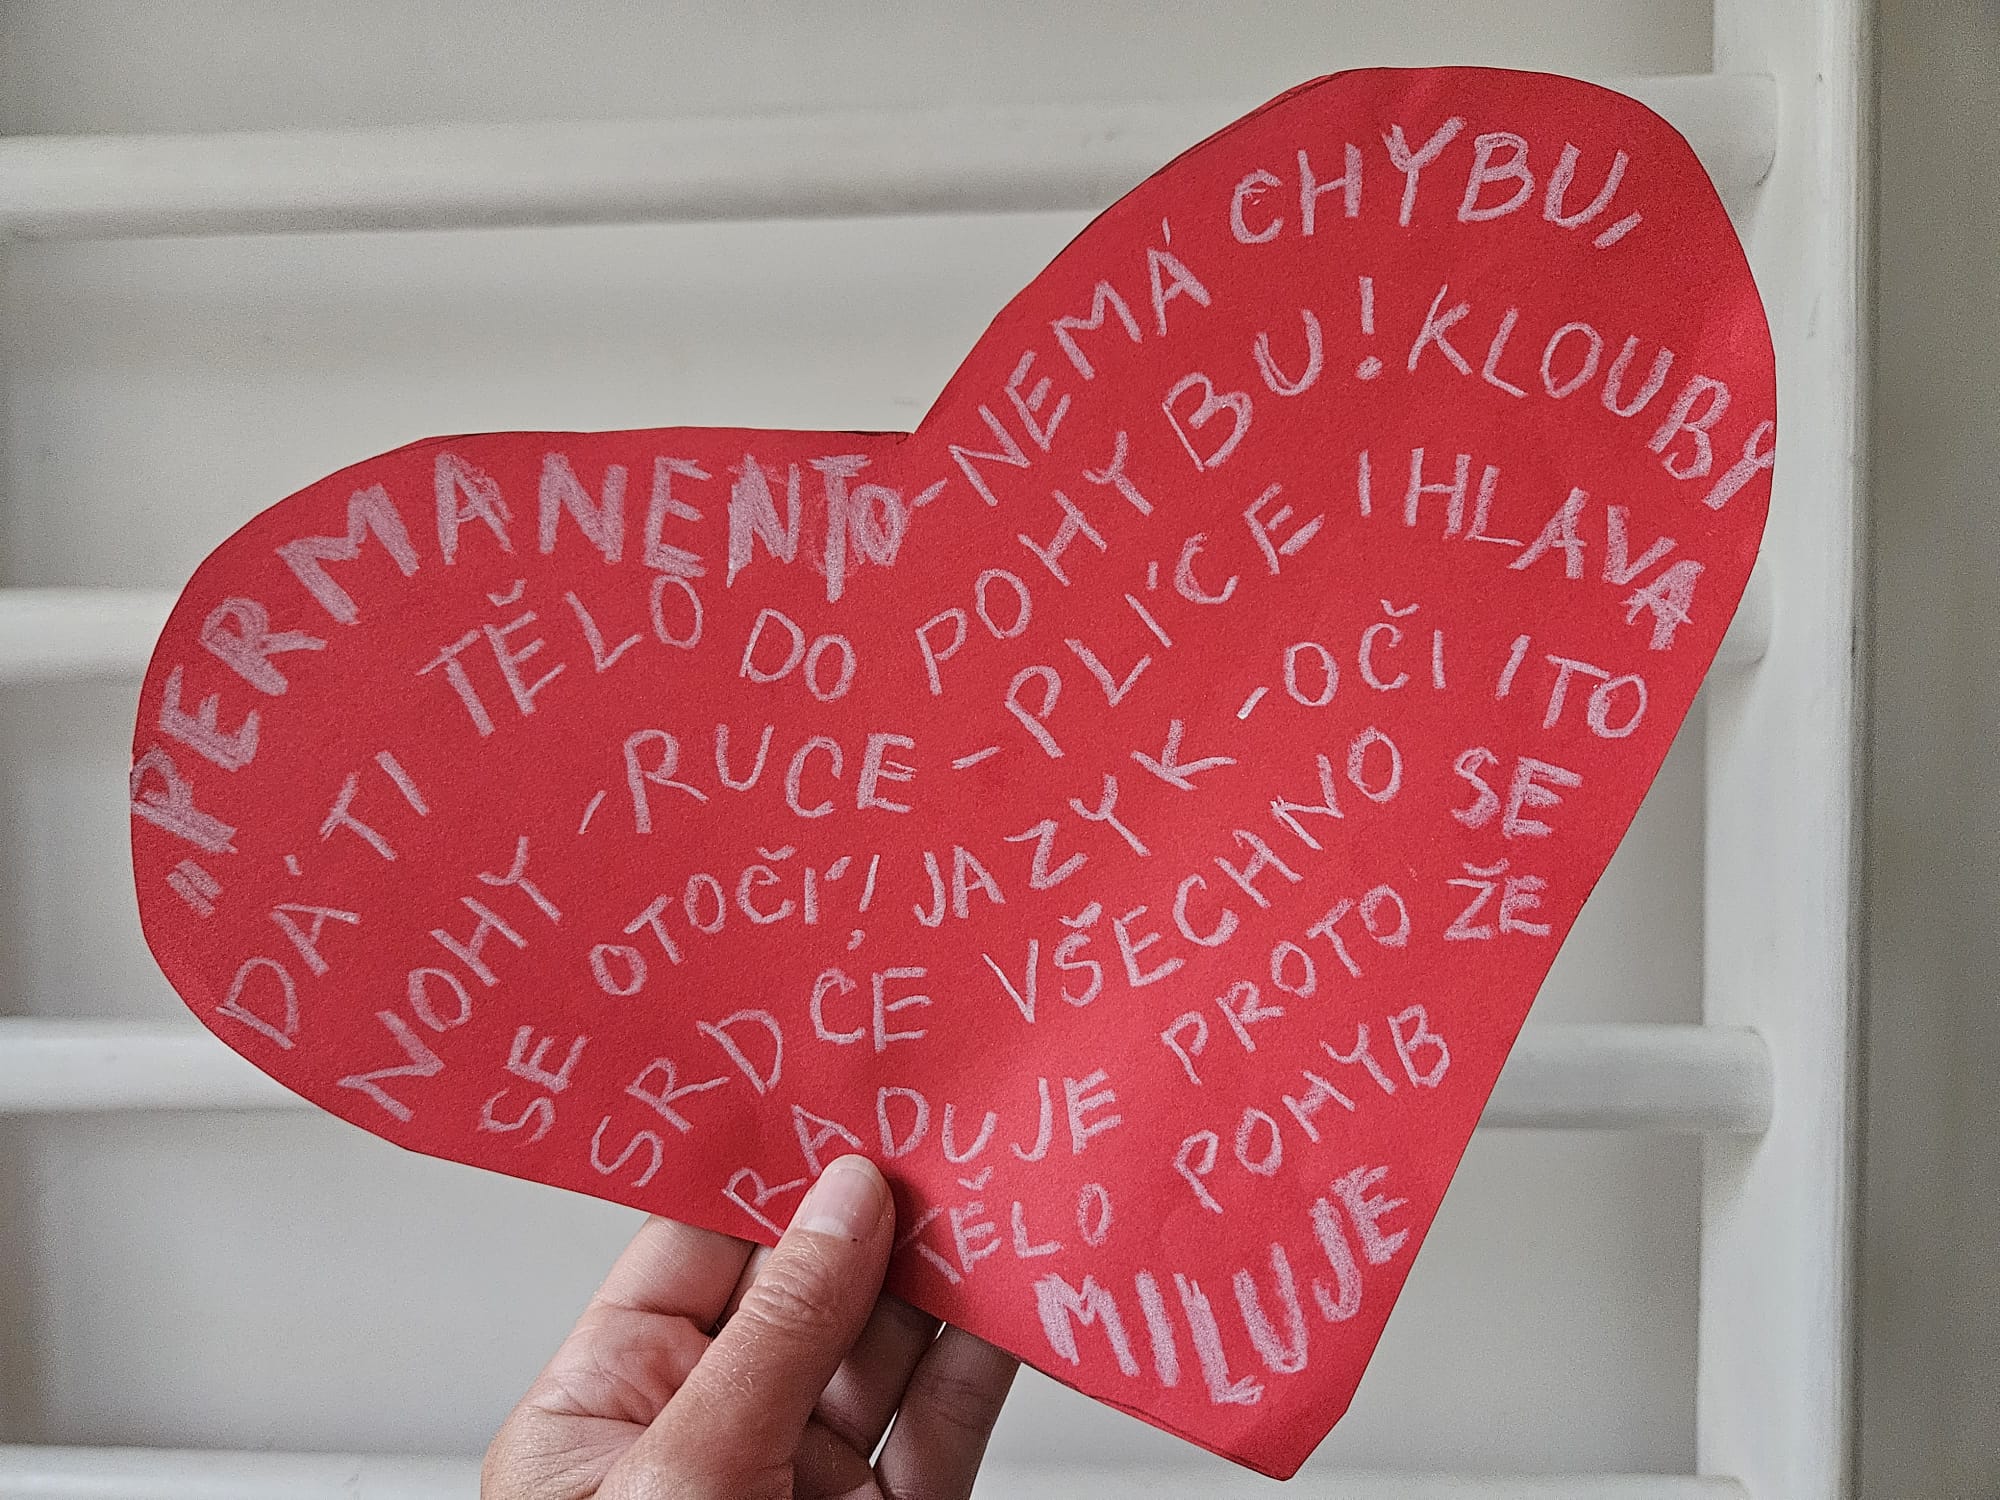 "PERMANENTO-NEMÁ CHYBU,
DÁ TI TĚLO DO POHYBU! KLOUBY
NOHY - RUCE - PLÍCE I HLAVA
SE OTOČÍ! JAZYK - OČI I TO
SRDCE VŠECHNO SE
RADUJE PROTO ŽE
TĚLO POHYB
MILUJE